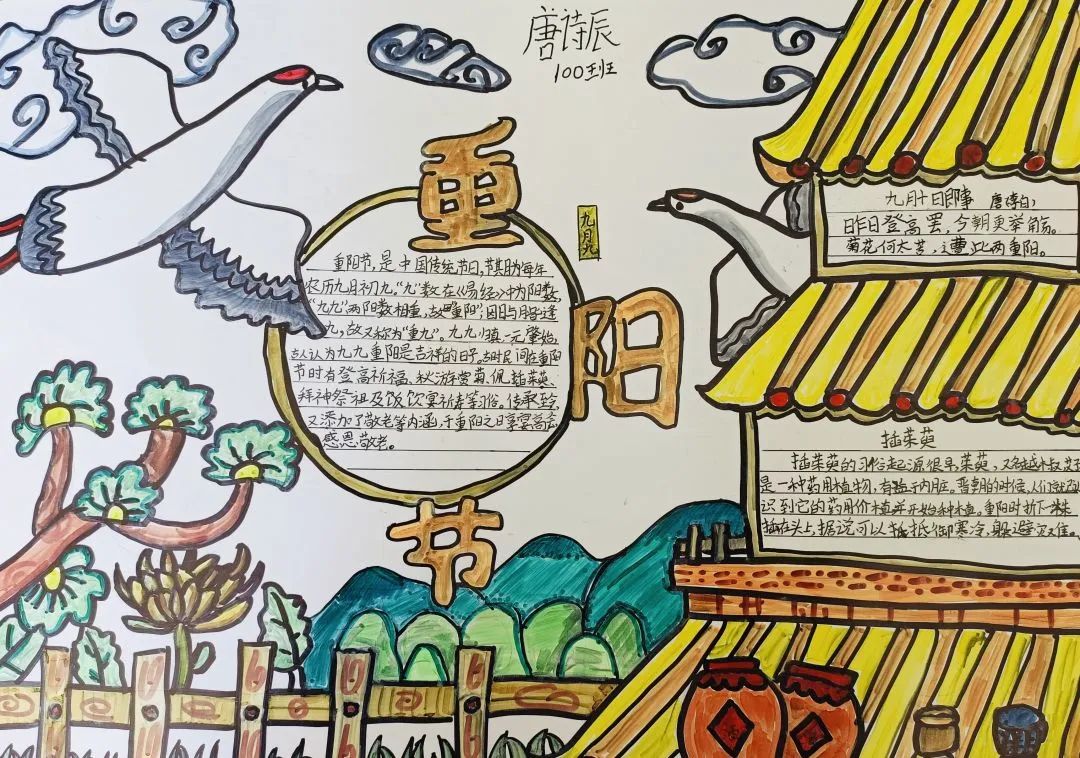 唐诗辰
100班
重
阳
节
九月九
重阳节,是中国传统节日,节期为每年
农历九月初九。“九”数在《易经》中为阳数,
“九九”两阳数相重,故曰“重阳”;因日与月皆逢
九,故又称为“重九”。九九归真,一元肇始,
古人认为九九重阳是吉祥的日子。古时民间在重阳
节时有登高祈福、秋游赏菊、佩插茱萸、
拜神祭祖及饮宴祈寿等习俗。传承至今,
又添加了敬老等内涵,于重阳之日享宴高会,
感恩敬老。
九月十日即事 唐(李白)
昨日登高罢,今朝更举觞。
菊花何太苦,遭此两重阳。
插茱萸
插茱萸的习俗起源很早,茱萸,又名越椒
是一种药用植物,有 于内庭。晋朝的时候,人们
识到它的药用价值并开始种植。重阳时折下一株
插在头上,据说可以抵御寒冷,躲避灾难。